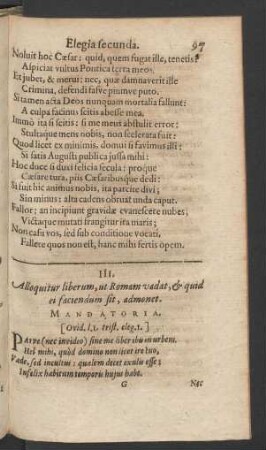 Elegia secunda. 97
Noluit hoc Cæsar: quid, quem fugat ille, tenetis?
Aspiciat vultus Pontica terra meos.
Et jubet, & merui: nec, quæ damnaverit ille
Crimina, defendi fasve piumve puto.
Si tamen acta Deos nunquam mortalia fallunt:
A culpa facinus scitis abesse mea.
Immò ita si scitis: si me meus abstulit error:
Stultaque mens nobis, non scelerata fuit:
Quod licet ex minimis, domui si favimus illi:
Si satis Augusti publica jussa mihi:
Hoc duce si dixi felicia secula: proque
Cæsare tura, piis Cæsaribusque dedi:
Si fuit hic animus nobis, ita parcite divi;
Sin minus: alta cadens obruat unda caput.
Fallor: an incipiunt gravidæ evanescere nubes;
Victaque mutati frangitur ira maris;
Non casu vos, sed sub conditione vocati,
Fallere quos non est, hanc mihi fertis opem.
III.
Alloquitur liberum, ut Romam vadat, & quid
ei faciendum sit, admonet.
MANDATORIA.
[Ovid. l.1. trist. eleg.1.]
Parve (nec invideo) sine me liber ibis in urbem.
Hei mihi, quòd domino non licet ire tuo,
Vade, sed incultus: qualem decet exulis esse;
Infelix habitum temporis hujus habe.
G Nec